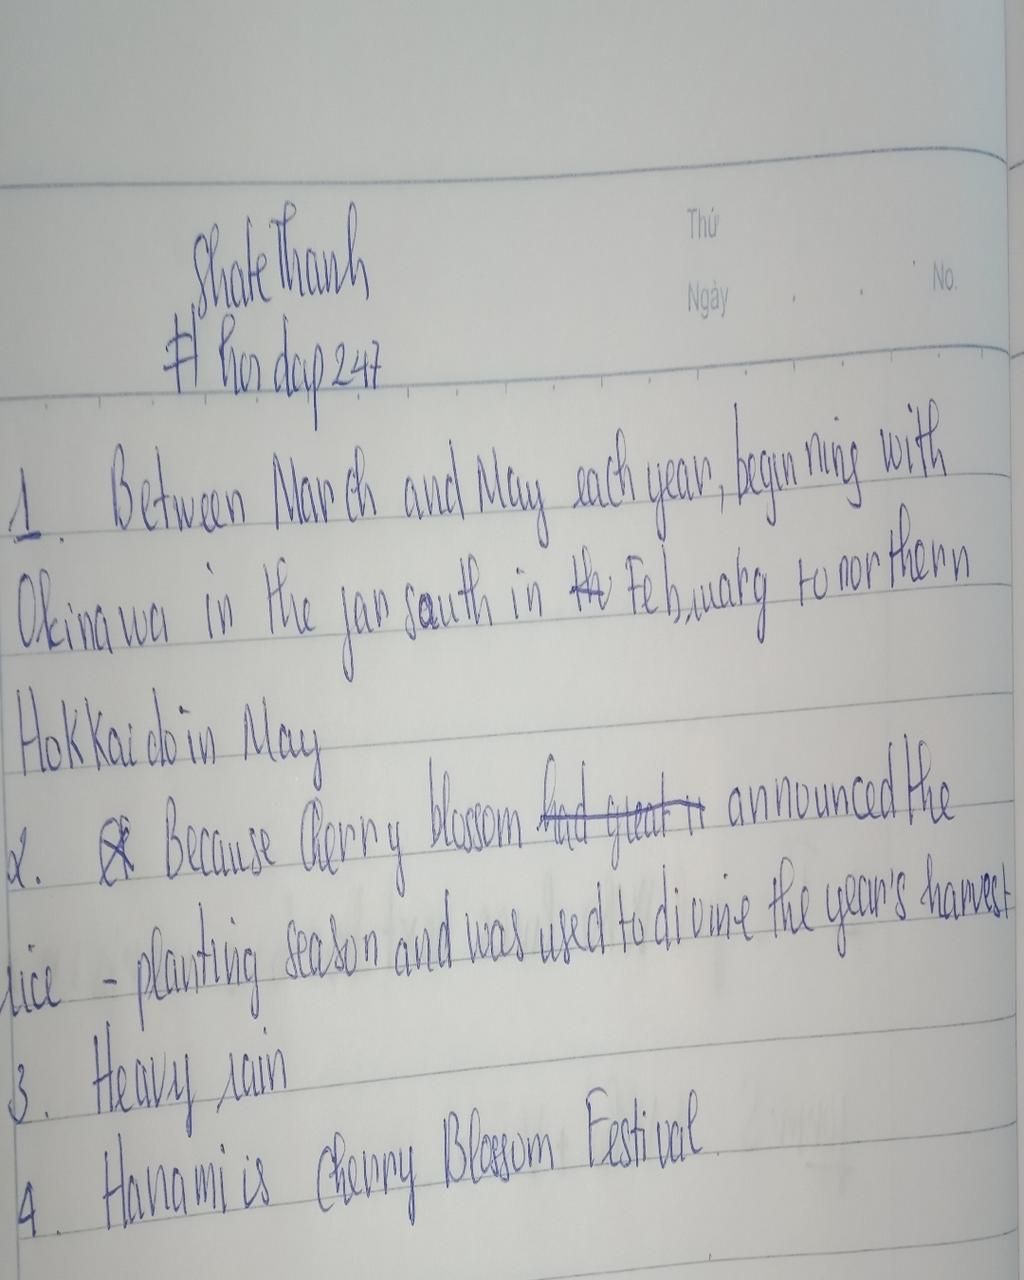 ShateThanh
Thứ
Ngày
No.
# hoi dap 247
1. Between March and May each year, beginning with
Okinawa in the far south in the February to northern
Hokkaido in May
2. Because Cherry blossom had great it announced the
rice - planting season and was used to divine the year's harvest
3. Heavy rain
4. Hanami is Cherry Blossom Festival